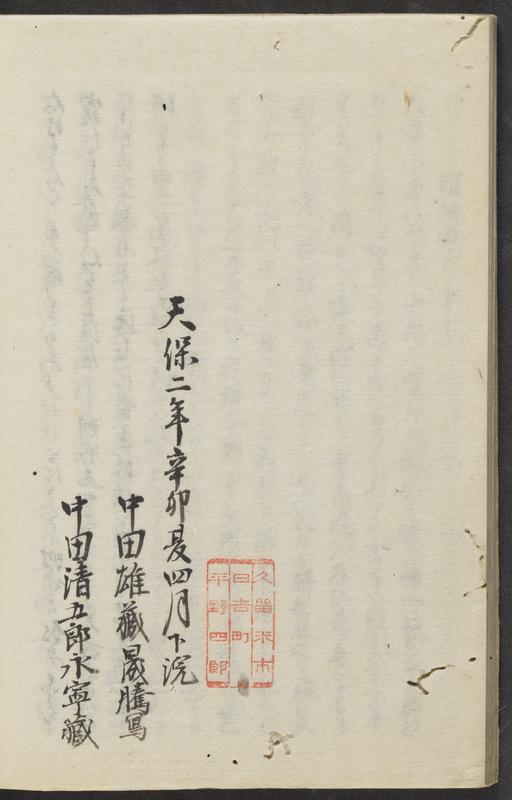 久留米市
日吉町
平野四郎
天保二年辛卯夏四月下浣
中田雄藏晟騰写
中田清五郎永寧藏